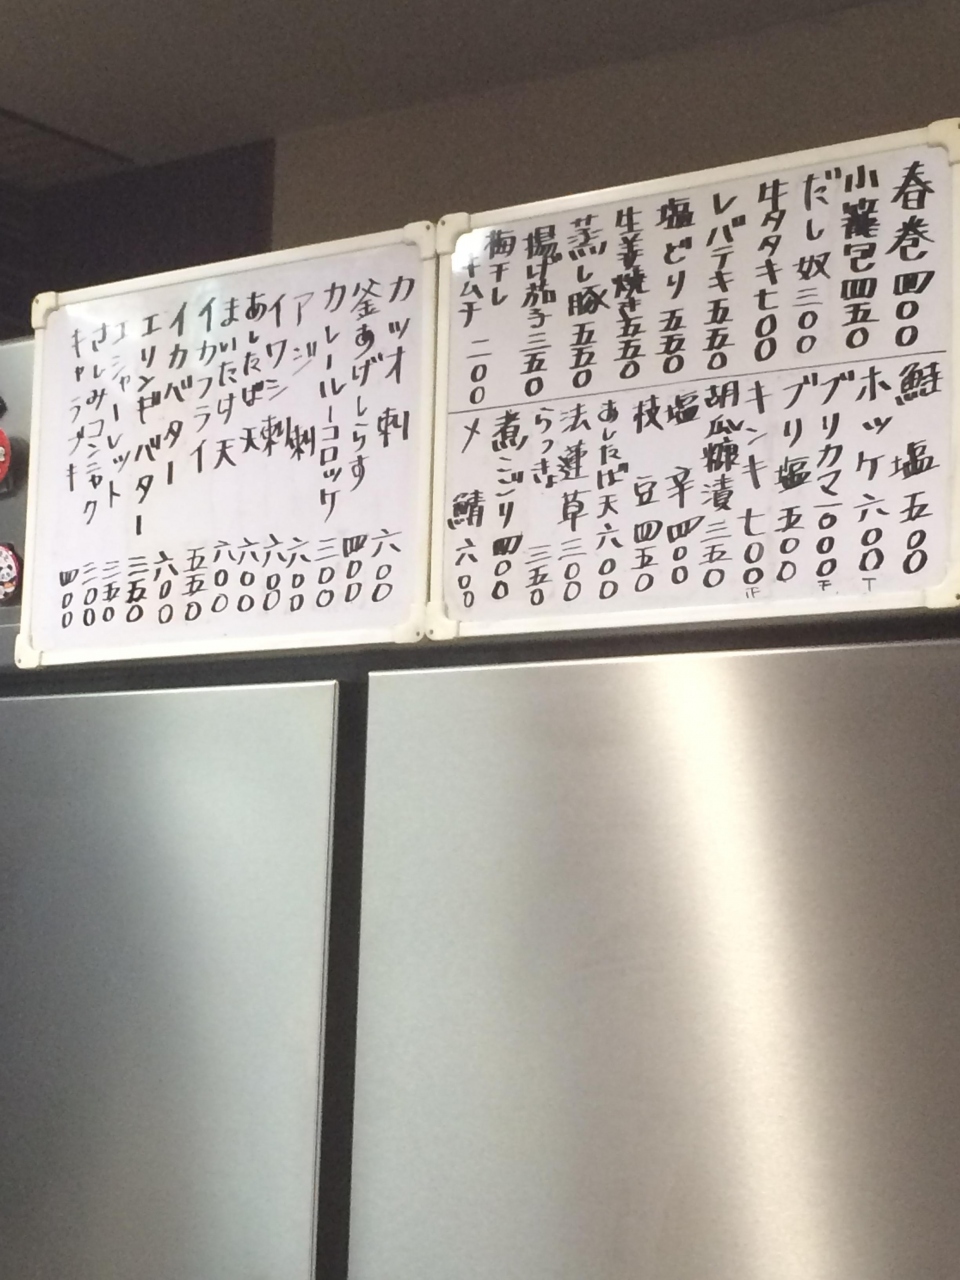 春巻 四〇〇
小籠包 四五〇
だし奴 三〇〇
牛タタキ 七〇〇
レバテキ 五五〇
塩どり 五五〇
生姜焼き 五五〇
蒸し豚 五五〇
揚げ茄子 三五〇
梅干し
キムチ 二〇〇
鮭 塩 五〇〇
ホッケ 六〇〇
ブリカマ 一〇〇〇
ブリ塩 五〇〇
キンキ 七〇〇
胡瓜糠漬 三五〇
塩辛 四〇〇
枝豆 四五〇
あしたば天 六〇〇
法蓮草 三〇〇
らっきょ 三五〇
煮こごり 四〇〇
〆鯖 六〇〇
カツオ刺 六〇〇
釜あげしらす 四〇〇
カレールーコロッケ 三〇〇
アジ刺 六〇〇
イワシ刺 六〇〇
あしたば天 六〇〇
まいたけ天 六〇〇
イカフライ 五五〇
イカバター 六〇〇
エリンギバター 三五〇
エシャーレット 三五〇
さしみコンニャク 三〇〇
キャラブキ 四〇〇